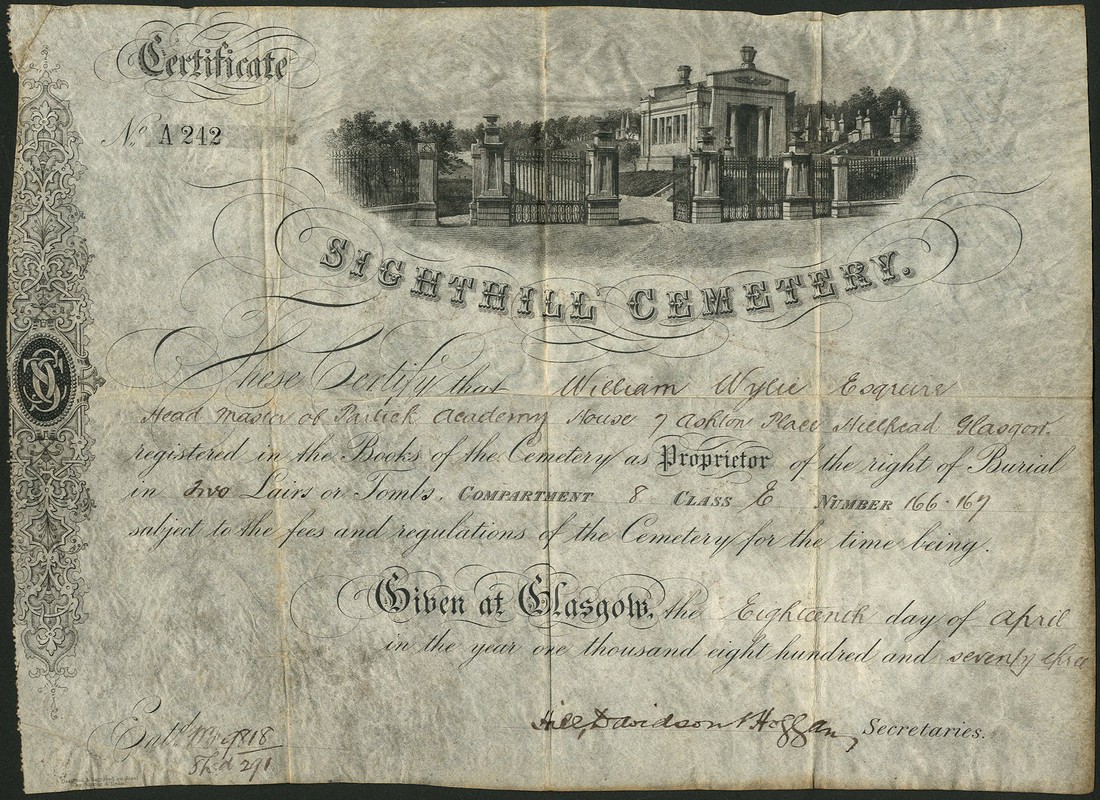 Certificate
No. A 242
SIGHTHILL CEMETERY.
These Certify that William Wylie Esquire
Head Master of Partick Academy House 7 Ashton Place Hillhead Glasgow.
registered in the Books of the Cemetery as Proprietor of the right of Burial
in Two Lairs or Tombs. COMPARTMENT 8 CLASS E NUMBER 166 · 167
subject to the fees and regulations of the Cemetery for the time being.
Given at Glasgow, the Eighteenth day of April
in the year one thousand eight hundred and seventy three
Hill, Davidson & Hoggan, Secretaries.
Entd.
291